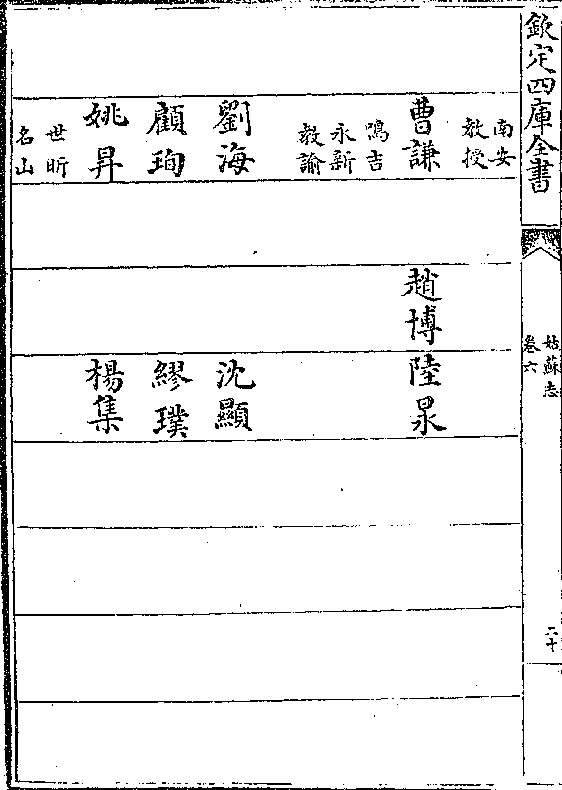 欽定四庫全書
姑蘇志
卷六
二十
南安
教授
曹謙
趙博
陸昶
鳴吉
永新
教諭
劉海
沈顯
顧珣
繆璞
姚昇
楊集
世昕
名山